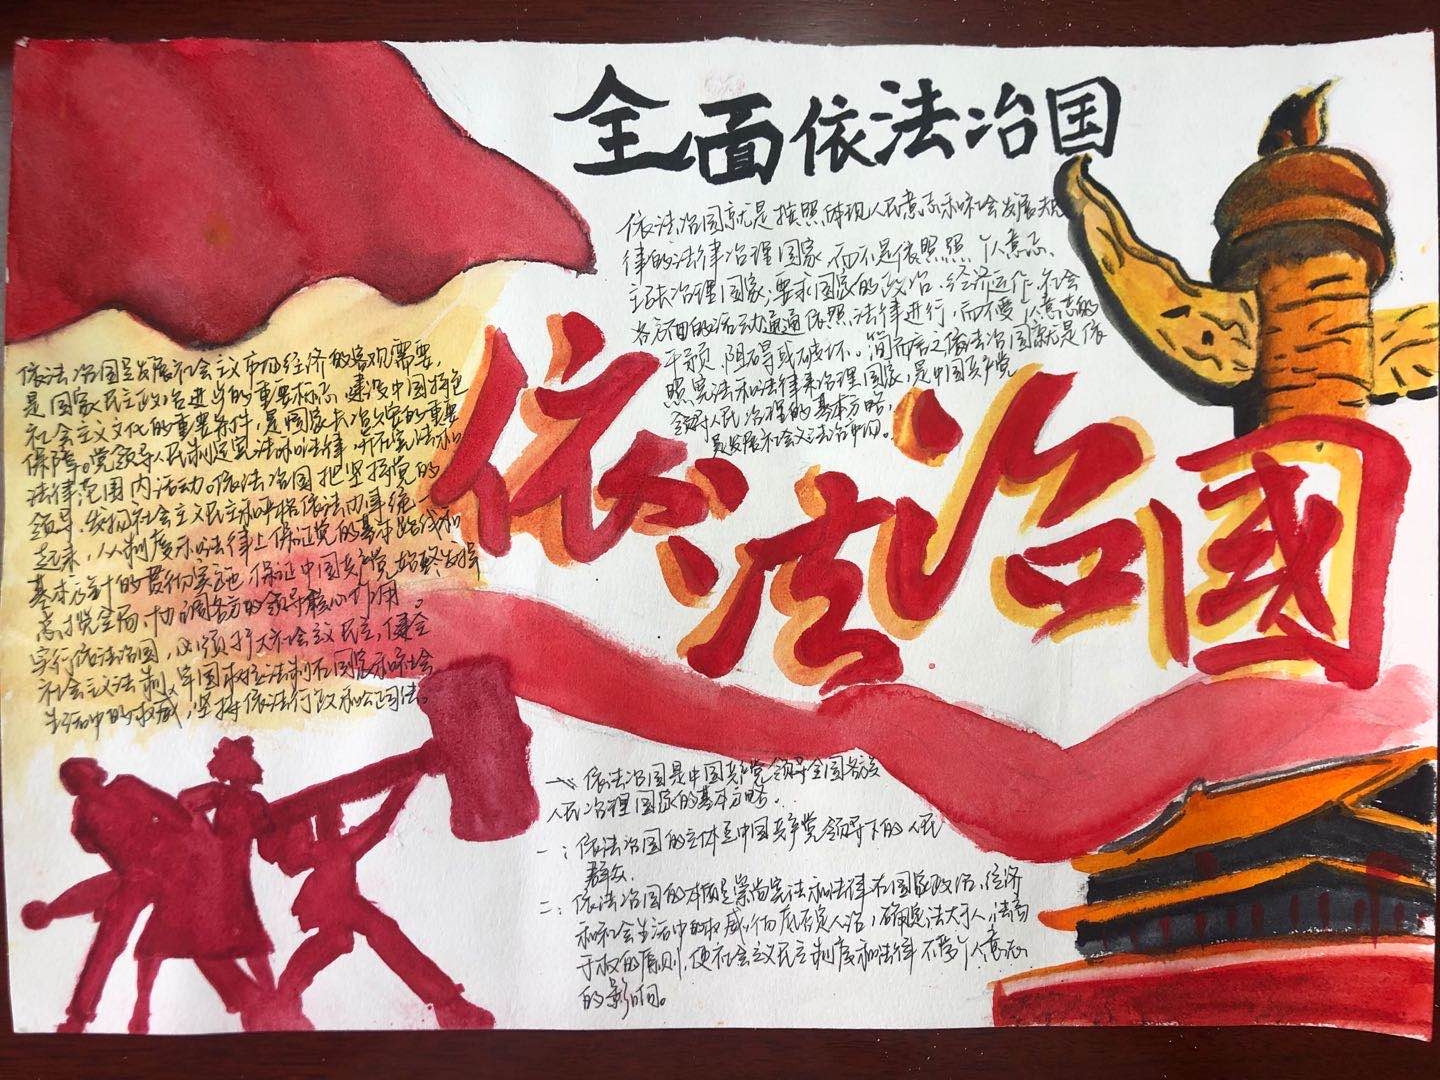 全面依法治国
依法治国就是按照体现人民意志和社会发展规
律的法律治理国家,而不是依照照个人意志、
主张治理国家;要求国家的政治、经济运作、社会
各方面的活动通通依照法律进行,而不受个人意志的
干预、阻碍或破坏。简而言之依法治国就是依
照宪法和法律来治理国家,是中国共产党
领导人民治理的基本方略,
是发展社会主义法治中国。
依法治國
依法治国是发展社会主义市场经济的客观需要,
是国家民主政治进步的重要标志,建设中国特色
社会主义文化的重要条件,是国家长治久安的重要
保障。党领导人民制定宪法和法律,并在宪法和
法律范围内活动。依法治国把坚持党的
领导、发扬社会主义民主和严格依法办事统一
起来,从制度和法律上保证党的基本路线和
基本方针的贯彻实施,保证中国共产党始终发挥
总揽全局、协调各方的领导核心作用
实行依法治国,必须扩大社会主义民主,健全
社会主义法制,牢固树立法制在国家和社会
生活中的权威,坚持依法行政和公正司法。
一、依法治国是中国共产党领导全国各族
人民治理国家的基本方略。
一:依法治国的主体是中国共产党领导下的人民
群众.
二:依法治国的本质是崇尚宪法和法律在国家政治、经济
和社会生活中的权威,彻底否定人治,确立法大于人,法高
于权的原则,使社会主义民主制度和法律不受个人意志
的影响。